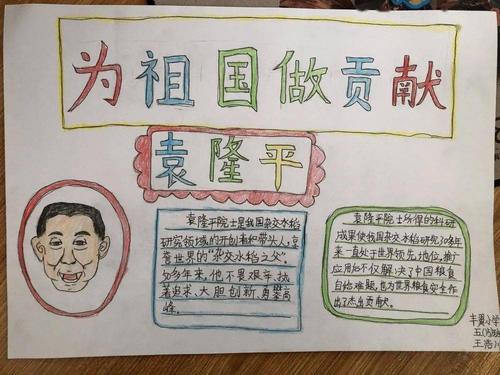 为祖国做贡献
袁隆平
袁隆平院士是我国杂交水稻
研究领域的开创者和带头人,享
誉世界的“杂交水稻之父”。
多年来,他不畏艰辛,执
著追求、大胆创新,勇攀高
峰。
袁隆平院士所得的科研
成果使我国杂交水稻研究
来一直处于世界领先地位,推广
应用后不仅解决了中国粮食
自给难题,也为世界粮食安全作
出了杰出贡献。
小学
五
王浩